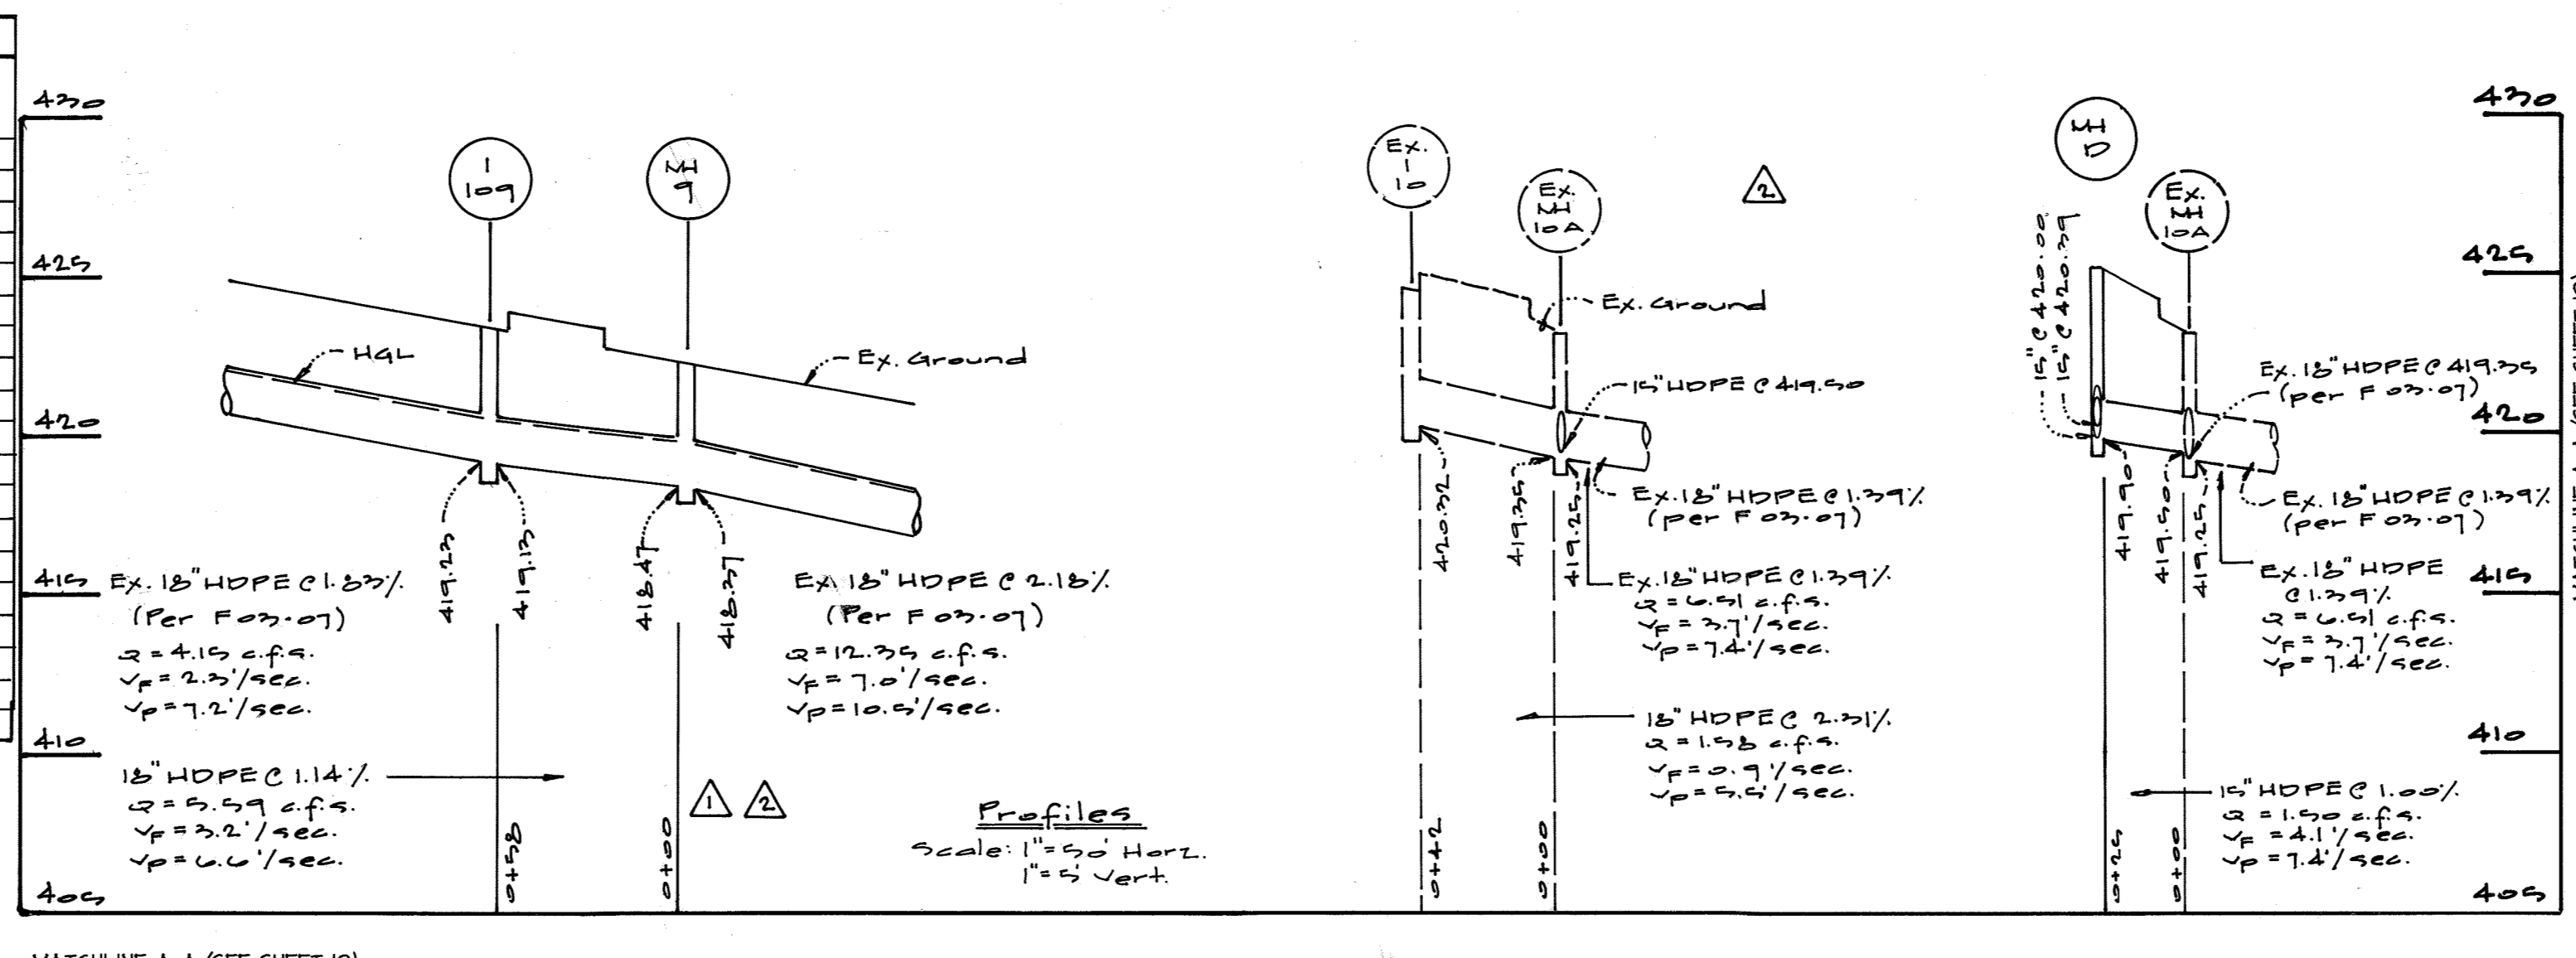 430
425
420
415
410
405
I
109
MH
9
HGL
Ex. Ground
419.23
419.13
418.47
418.37
Ex. 18" HDPE @ 1.83%
(Per F 03-07)
Q = 4.15 c.f.s.
VF = 2.3'/sec.
Vp = 7.2'/sec.
Ex. 18" HDPE @ 2.18%
(Per F 03-07)
Q = 12.35 c.f.s.
VF = 7.0'/sec.
Vp = 10.5'/sec.
18" HDPE @ 1.14%
Q = 5.59 c.f.s.
VF = 3.2'/sec.
Vp = 6.6'/sec.
0+58
0+00
1
2
Profiles
Scale: 1" = 50' Horz.
1" = 5' Vert.
Ex.
I
10
Ex.
MH
10A
2
Ex. Ground
15" HDPE @ 419.50
420.32
419.35
419.25
Ex. 18" HDPE @ 1.39%
(per F 03-07)
Ex. 18" HDPE @ 1.39%
Q = 6.51 c.f.s.
VF = 3.7'/sec.
Vp = 7.4'/sec.
18" HDPE @ 2.31%
Q = 1.58 c.f.s.
VF = 0.9'/sec.
Vp = 5.5'/sec.
0+42
0+00
MH
D
Ex.
MH
10A
15" @ 420.00
15" @ 420.39
Ex. 18" HDPE @ 419.35
(per F 03-07)
419.90
419.50
419.25
Ex. 18" HDPE @ 1.39%
(per F 03-07)
Ex. 18" HDPE
@ 1.39%
Q = 6.51 c.f.s.
VF = 3.7'/sec.
Vp = 7.4'/sec.
15" HDPE @ 1.00%
Q = 1.50 c.f.s.
VF = 4.1'/sec.
Vp = 7.4'/sec.
0+25
0+00
430
425
420
415
410
405
MATCHLINE A-A (SEE SHEET